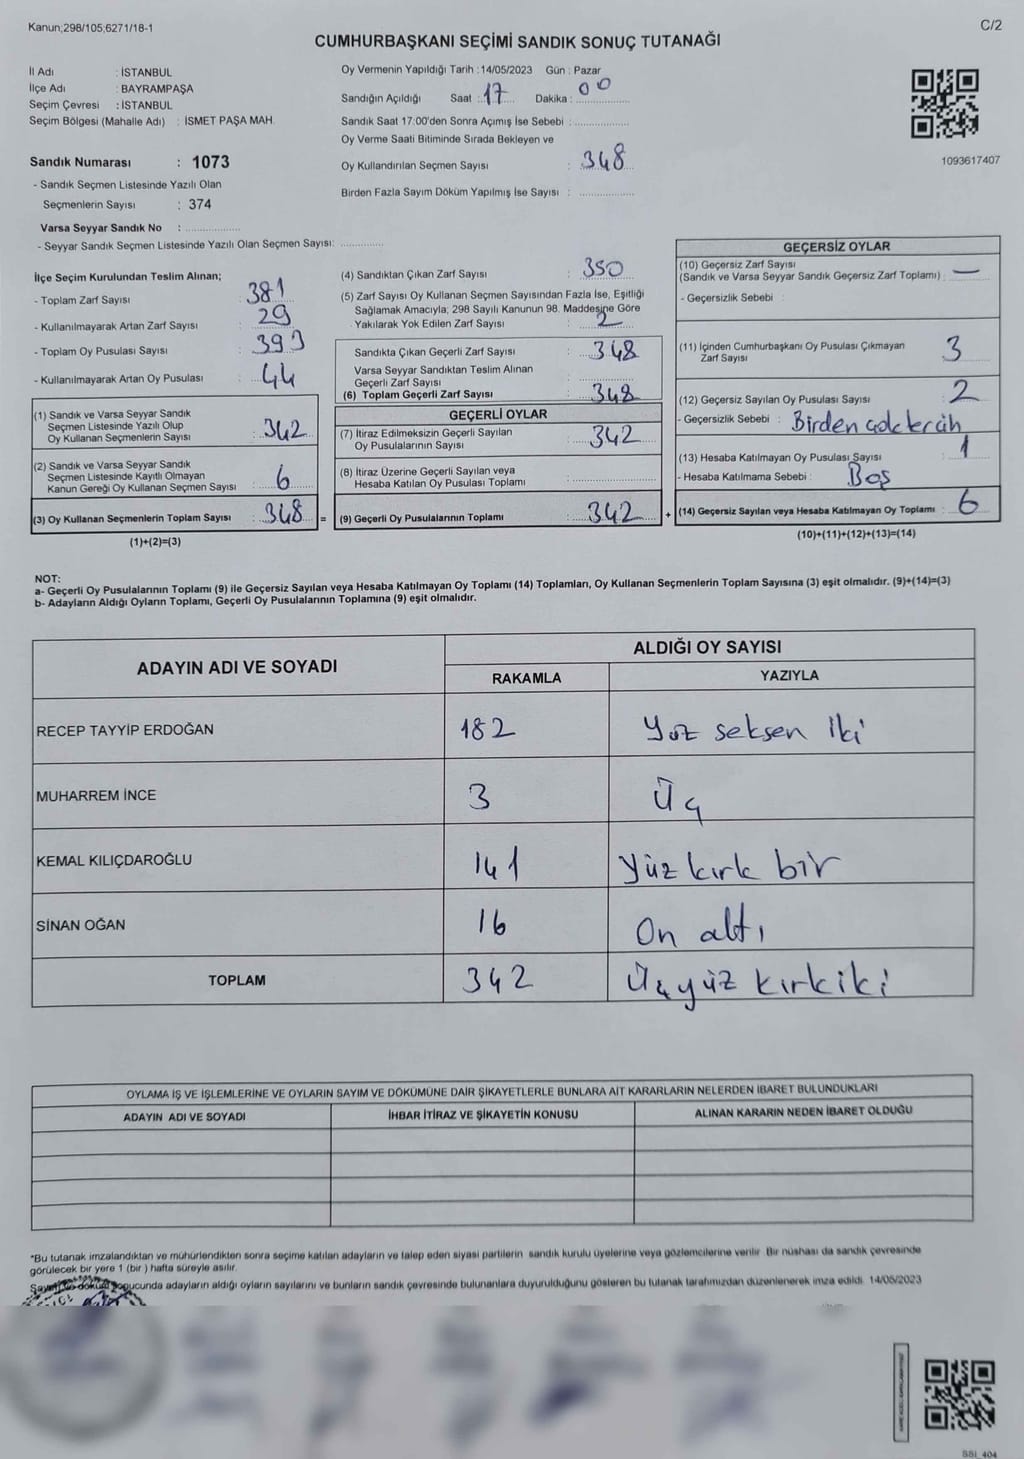 Kanun;298/105;6271/18-1
C/2
CUMHURBAŞKANI SEÇİMİ SANDIK SONUÇ TUTANAĞI
İl Adı : İSTANBUL
İlçe Adı : BAYRAMPAŞA
Seçim Çevresi : İSTANBUL
Seçim Bölgesi (Mahalle Adı) : İSMET PAŞA MAH.
Sandık Numarası : 1073
- Sandık Seçmen Listesinde Yazılı Olan
Seçmenlerin Sayısı : 374
Varsa Seyyar Sandık No : ..................
- Seyyar Sandık Seçmen Listesinde Yazılı Olan Seçmen Sayısı: .............
Oy Vermenin Yapıldığı Tarih :14/05/2023 Gün : Pazar
Sandığın Açıldığı Saat : 17 Dakika : 00
Sandık Saat 17:00'den Sonra Açımış İse Sebebi : ..................
Oy Verme Saati Bitiminde Sırada Bekleyen ve
Oy Kullandırılan Seçmen Sayısı : 348
Birden Fazla Sayım Döküm Yapılmış İse Sayısı : ..................
1093617407
İlçe Seçim Kurulundan Teslim Alınan;
- Toplam Zarf Sayısı : 381
- Kullanılmayarak Artan Zarf Sayısı : 29
- Toplam Oy Pusulası Sayısı : 393
- Kullanılmayarak Artan Oy Pusulası : 44
(1) Sandık ve Varsa Seyyar Sandık
Seçmen Listesinde Yazılı Olup
Oy Kullanan Seçmenlerin Sayısı : 342
(2) Sandık ve Varsa Seyyar Sandık
Seçmen Listesinde Kayıtlı Olmayan
Kanun Gereği Oy Kullanan Seçmen Sayısı : 6
(3) Oy Kullanan Seçmenlerin Toplam Sayısı : 348 =
(1)+(2)=(3)
(4) Sandıktan Çıkan Zarf Sayısı : 350
(5) Zarf Sayısı Oy Kullanan Seçmen Sayısından Fazla İse, Eşitliği
Sağlamak Amacıyla; 298 Sayılı Kanunun 98. Maddesine Göre
Yakılarak Yok Edilen Zarf Sayısı : 2
Sandıkta Çıkan Geçerli Zarf Sayısı : 348
Varsa Seyyar Sandıktan Teslim Alınan
Geçerli Zarf Sayısı : ..................
(6) Toplam Geçerli Zarf Sayısı : 348
GEÇERLİ OYLAR
(7) İtiraz Edilmeksizin Geçerli Sayılan
Oy Pusulalarının Sayısı : 342
(8) İtiraz Üzerine Geçerli Sayılan veya
Hesaba Katılan Oy Pusulası Toplamı : ..................
(9) Geçerli Oy Pusulalarının Toplamı : 342 +
GEÇERSİZ OYLAR
(10) Geçersiz Zarf Sayısı
(Sandık ve Varsa Seyyar Sandık Geçersiz Zarf Toplamı) : —
- Geçersizlik Sebebi :
(11) İçinden Cumhurbaşkanı Oy Pusulası Çıkmayan
Zarf Sayısı 3
(12) Geçersiz Sayılan Oy Pusulası Sayısı : 2
- Geçersizlik Sebebi : Birden çok tercih
(13) Hesaba Katılmayan Oy Pusulası Sayısı : 1
- Hesaba Katılmama Sebebi : Boş
(14) Geçersiz Sayılan veya Hesaba Katılmayan Oy Toplamı : 6
(10)+(11)+(12)+(13)=(14)
NOT:
a- Geçerli Oy Pusulalarının Toplamı (9) ile Geçersiz Sayılan veya Hesaba Katılmayan Oy Toplamı (14) Toplamları, Oy Kullanan Seçmenlerin Toplam Sayısına (3) eşit olmalıdır. (9)+(14)=(3)
b- Adayların Aldığı Oyların Toplamı, Geçerli Oy Pusulalarının Toplamına (9) eşit olmalıdır.
ADAYIN ADI VE SOYADI
ALDIĞI OY SAYISI
RAKAMLA YAZIYLA
RECEP TAYYİP ERDOĞAN 182 Yüz seksen iki
MUHARREM İNCE 3 Üç
KEMAL KILIÇDAROĞLU 141 Yüz kırk bir
SİNAN OĞAN 16 On altı
TOPLAM 342 Üçyüz kırkiki
OYLAMA İŞ VE İŞLEMLERİNE VE OYLARIN SAYIM VE DÖKÜMÜNE DAİR ŞİKAYETLERLE BUNLARA AİT KARARLARIN NELERDEN İBARET BULUNDUKLARI
ADAYIN ADI VE SOYADI İHBAR İTİRAZ VE ŞİKAYETİN KONUSU ALINAN KARARIN NEDEN İBARET OLDUĞU
*Bu tutanak imzalandıktan ve mühürlendikten sonra seçime katılan adayların ve talep eden siyasi partilerin sandık kurulu üyelerine veya gözlemcilerine verilir. Bir nüshası da sandık çevresinde
görülecek bir yere 1 (bir ) hafta süreyle asılır.
Sayım ve döküm sonucunda adayların aldığı oyların sayılarını ve bunların sandık çevresinde bulunanlara duyurulduğunu gösteren bu tutanak tarafımızdan düzenlenerek imza edildi. 14/05/2023
SSI_404